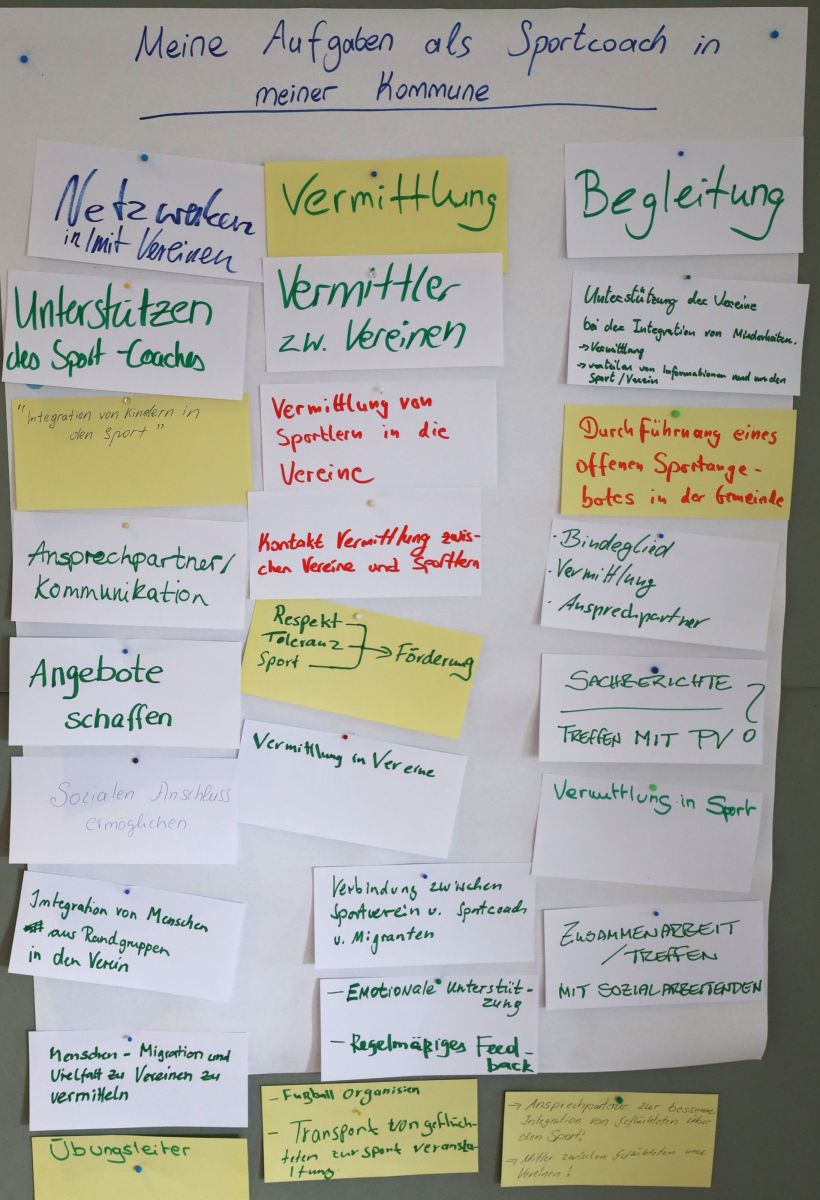 Meine Aufgaben als Sportcoach in
meiner Kommune
Netzwerken
in/mit Vereinen
Unterstützen
des Sport-Coaches
"Integration von Kindern in
den Sport"
Ansprechpartner/
Kommunikation
Angebote
schaffen
Sozialen Anschluss
ermöglichen
Integration von Menschen
aus Randgruppen
in den Verein
Menschen - Migration und
Vielfalt zu Vereinen zu
vermitteln
Übungsleiter
Vermittlung
Vermittler
zw. Vereinen
Vermittlung von
Sportlern in die
Vereine
Kontakt Vermittlung zwis-
chen Vereine und Sportlern
Respekt
Toleranz
Sport
→ Förderung
Vermittlung in Vereine
Verbindung zwischen
Sportverein u. Sportcoach
u. Migranten
- Emotionale Unterstüt-
zung
- Regelmäßiges Feed-
back
- Fußball Organisien
- Transport von geflüch-
teten zur Sport veransta-
ltung
Begleitung
Unterstützung der Vereine
bei der Integration von Minderheiten.
→ Vermittlung
→ verteilen von Informationen rund um den
Sport/Verein
Durchführnang eines
offenen Sportange-
botes in der Gemeinde
· Bindeglied
· Vermittlung
· Ansprechpartner
SACHBERICHTE
TREFFEN MIT PV ?
Vermittlung in Sport
ZUSAMMENARBEIT
/TREFFEN
MIT SOZIALARBEITENDEN
→ Ansprechpartner zur besseren
Integration von Geflüchteten über
den Sport!
→ Mittler zwischen Geflüchteten und
Vereinen!